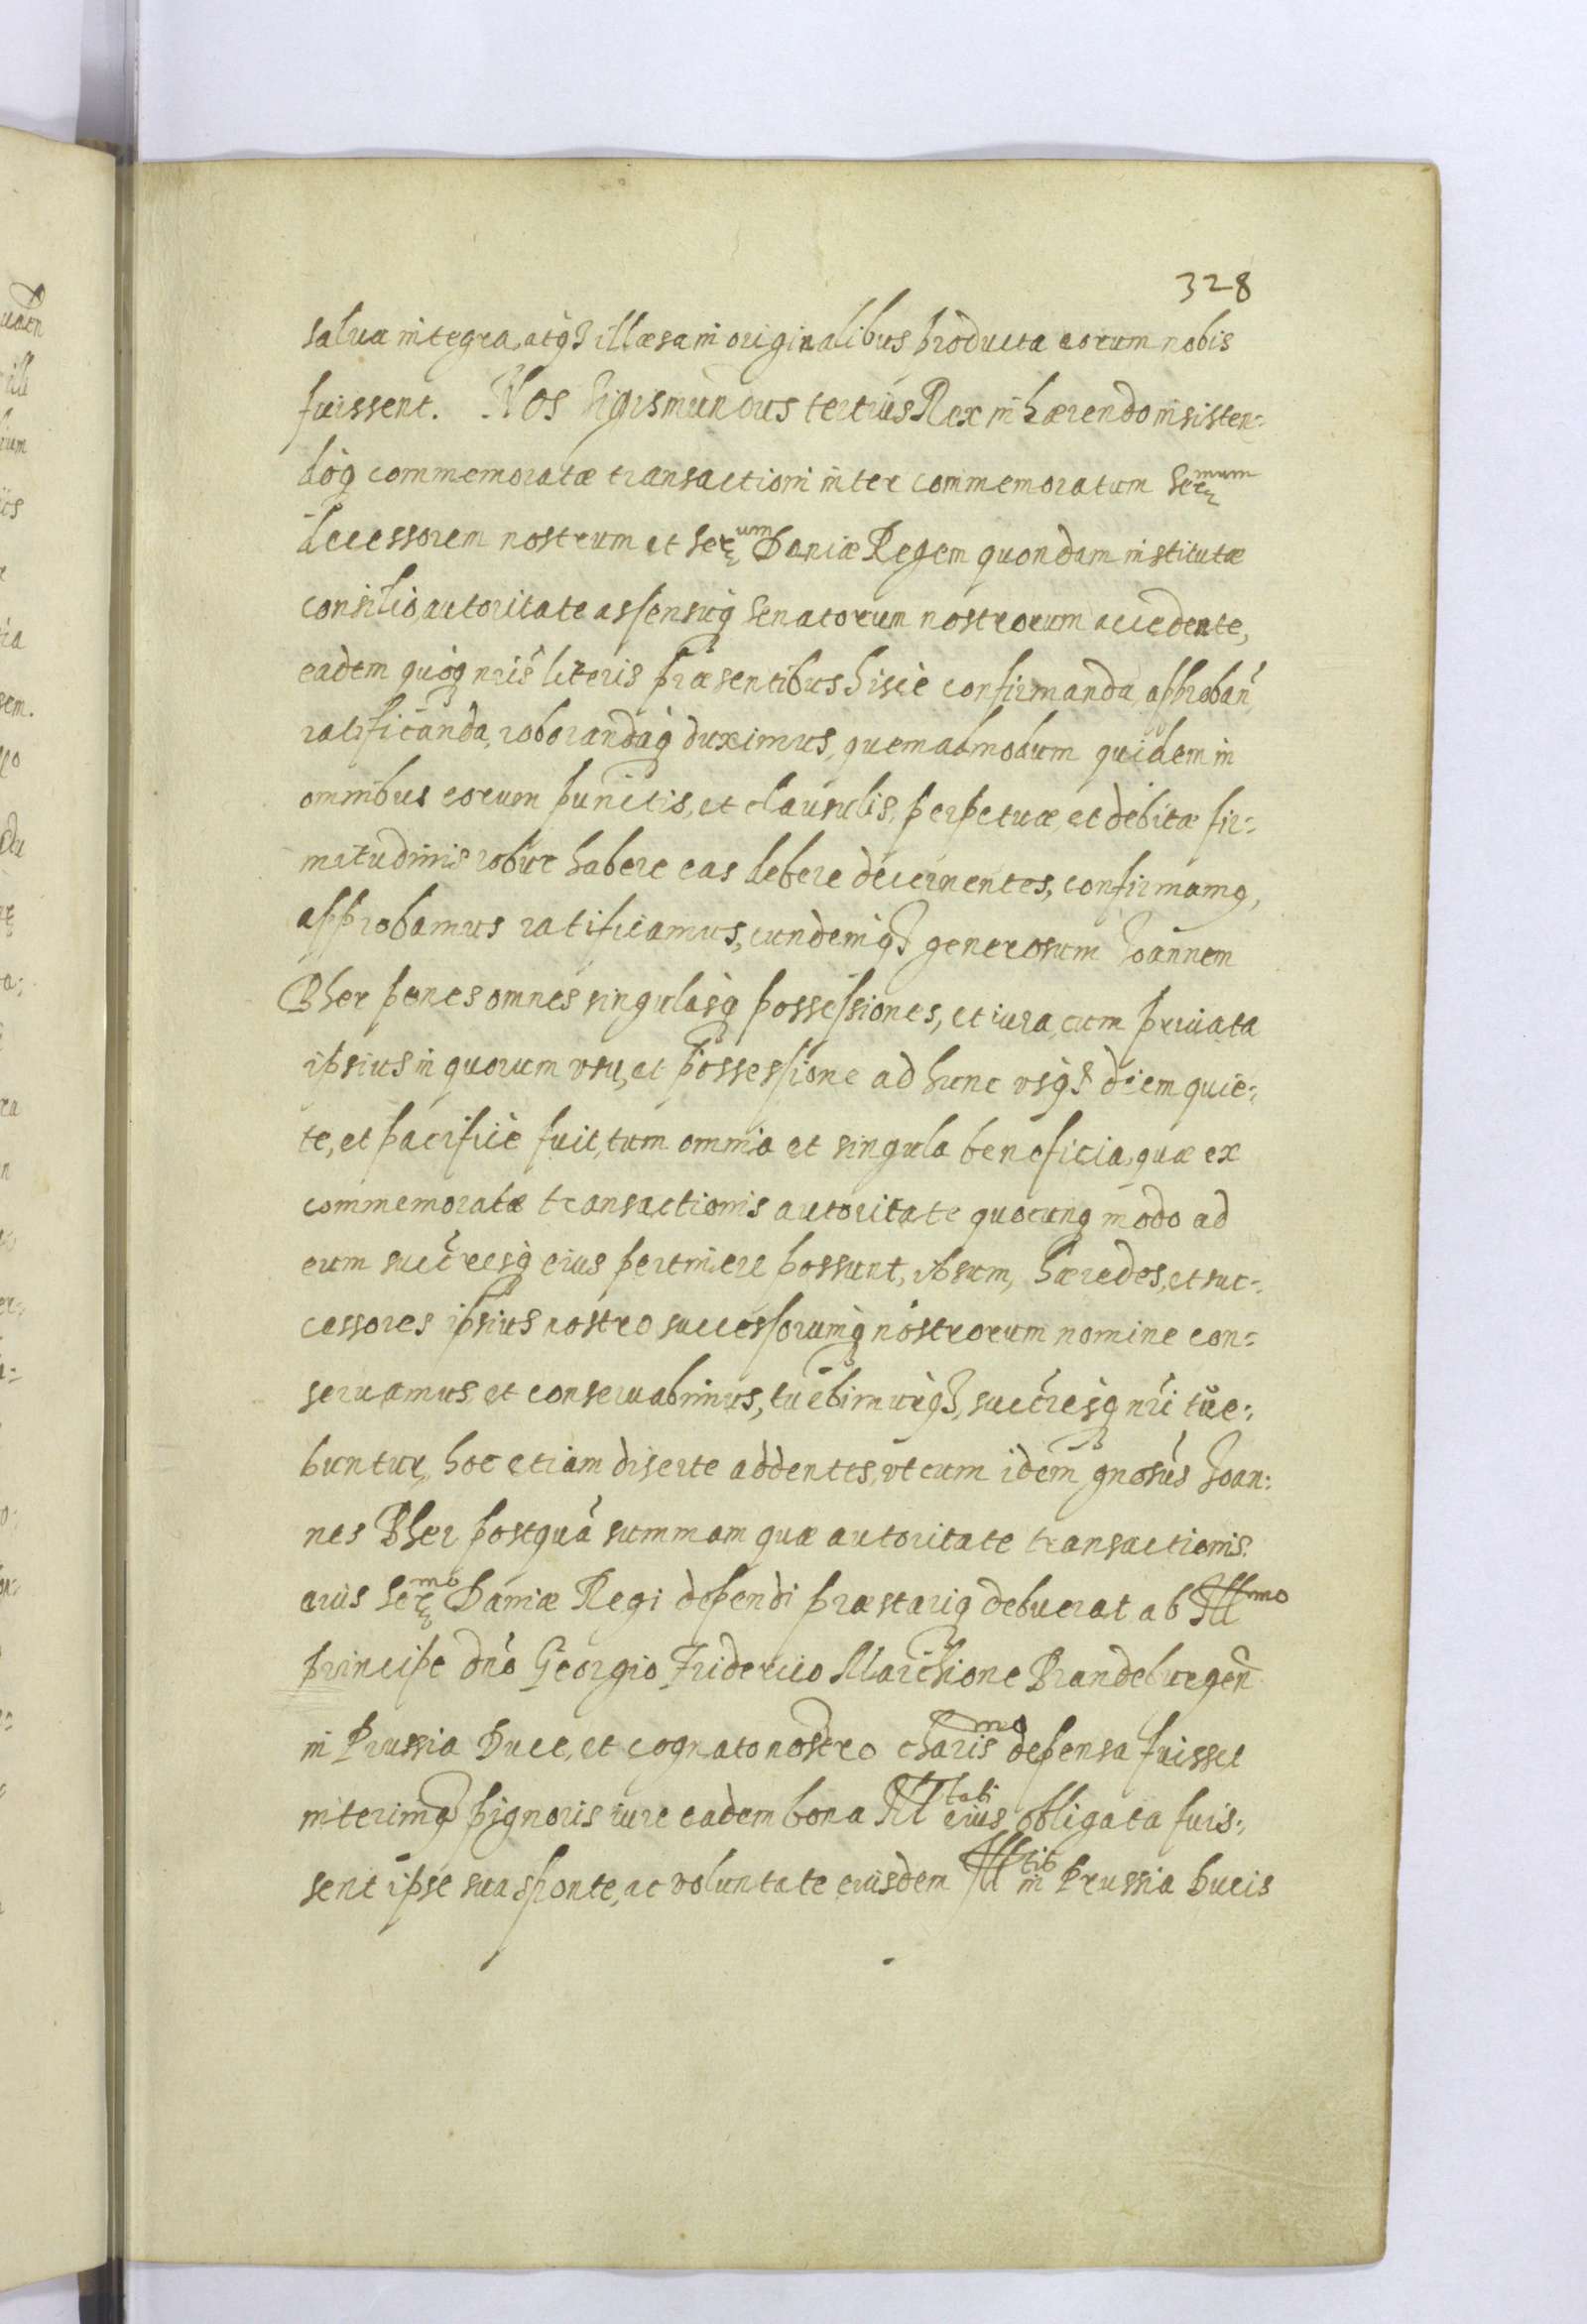 328
salua integra, atq3 illæsa in originalibus producta eorum nobis
fuissent. Nos Sigismundus tertius Rex inhærendo insisten:
doq commemoratæ transactioni inter commemoratum Ser^mum
decessorem nostrum et Ser^um Daniæ Regem quondam institutæ
consilio, autoritate assensuq Senatorum nostrorum accedente,
eadem quoq nris literis præsentibus hisce confirmanda, approban
ratificanda, roborandaq duximus, quemadmodum quidem in
omnibus eorum punctis, et clausulis, perpetuæ, et debitæ fir:
mitudinis robur habere eas debere decernentes, confirmamq,
approbamus ratificamus, eundemq3 generosum Joannem
Bher penes omnes singulasq possessiones, et iura, cum priuata
ipsius in quorum usu, et possessione ad hunc vsq3 diem quie:
te, et pacifice fuit, tum omnia et singula beneficia, quæ ex
commemoratæ transactionis autoritate quocunq modo ad
eum succresq eius pertinere possunt, ipsum, hæredes, et suc:
cessores ipsius nostro successorumq nostrorum nomine con:
seruamus, et conseruabimus, tuebimurq3, succresq nri tue:
buntur, hoc etiam diserte addentes, vt cum idem gnosus Joan:
nes Bher postqua summam quæ autoritate transactionis
eius Ser^mo Daniæ Regi dependi præstariq debuerat ab Ill^mo
principe dno Georgio Friderico Marchione Brandeburgen
in Prussia Duce, et cognato nostro charis^mo depensa fuisset
interimq pignoris iure eadem bona Ill^tati eius obligata fuis:
sent ipse sua sponte, ac voluntate eiusdem Ill^tis in Prussia Ducis